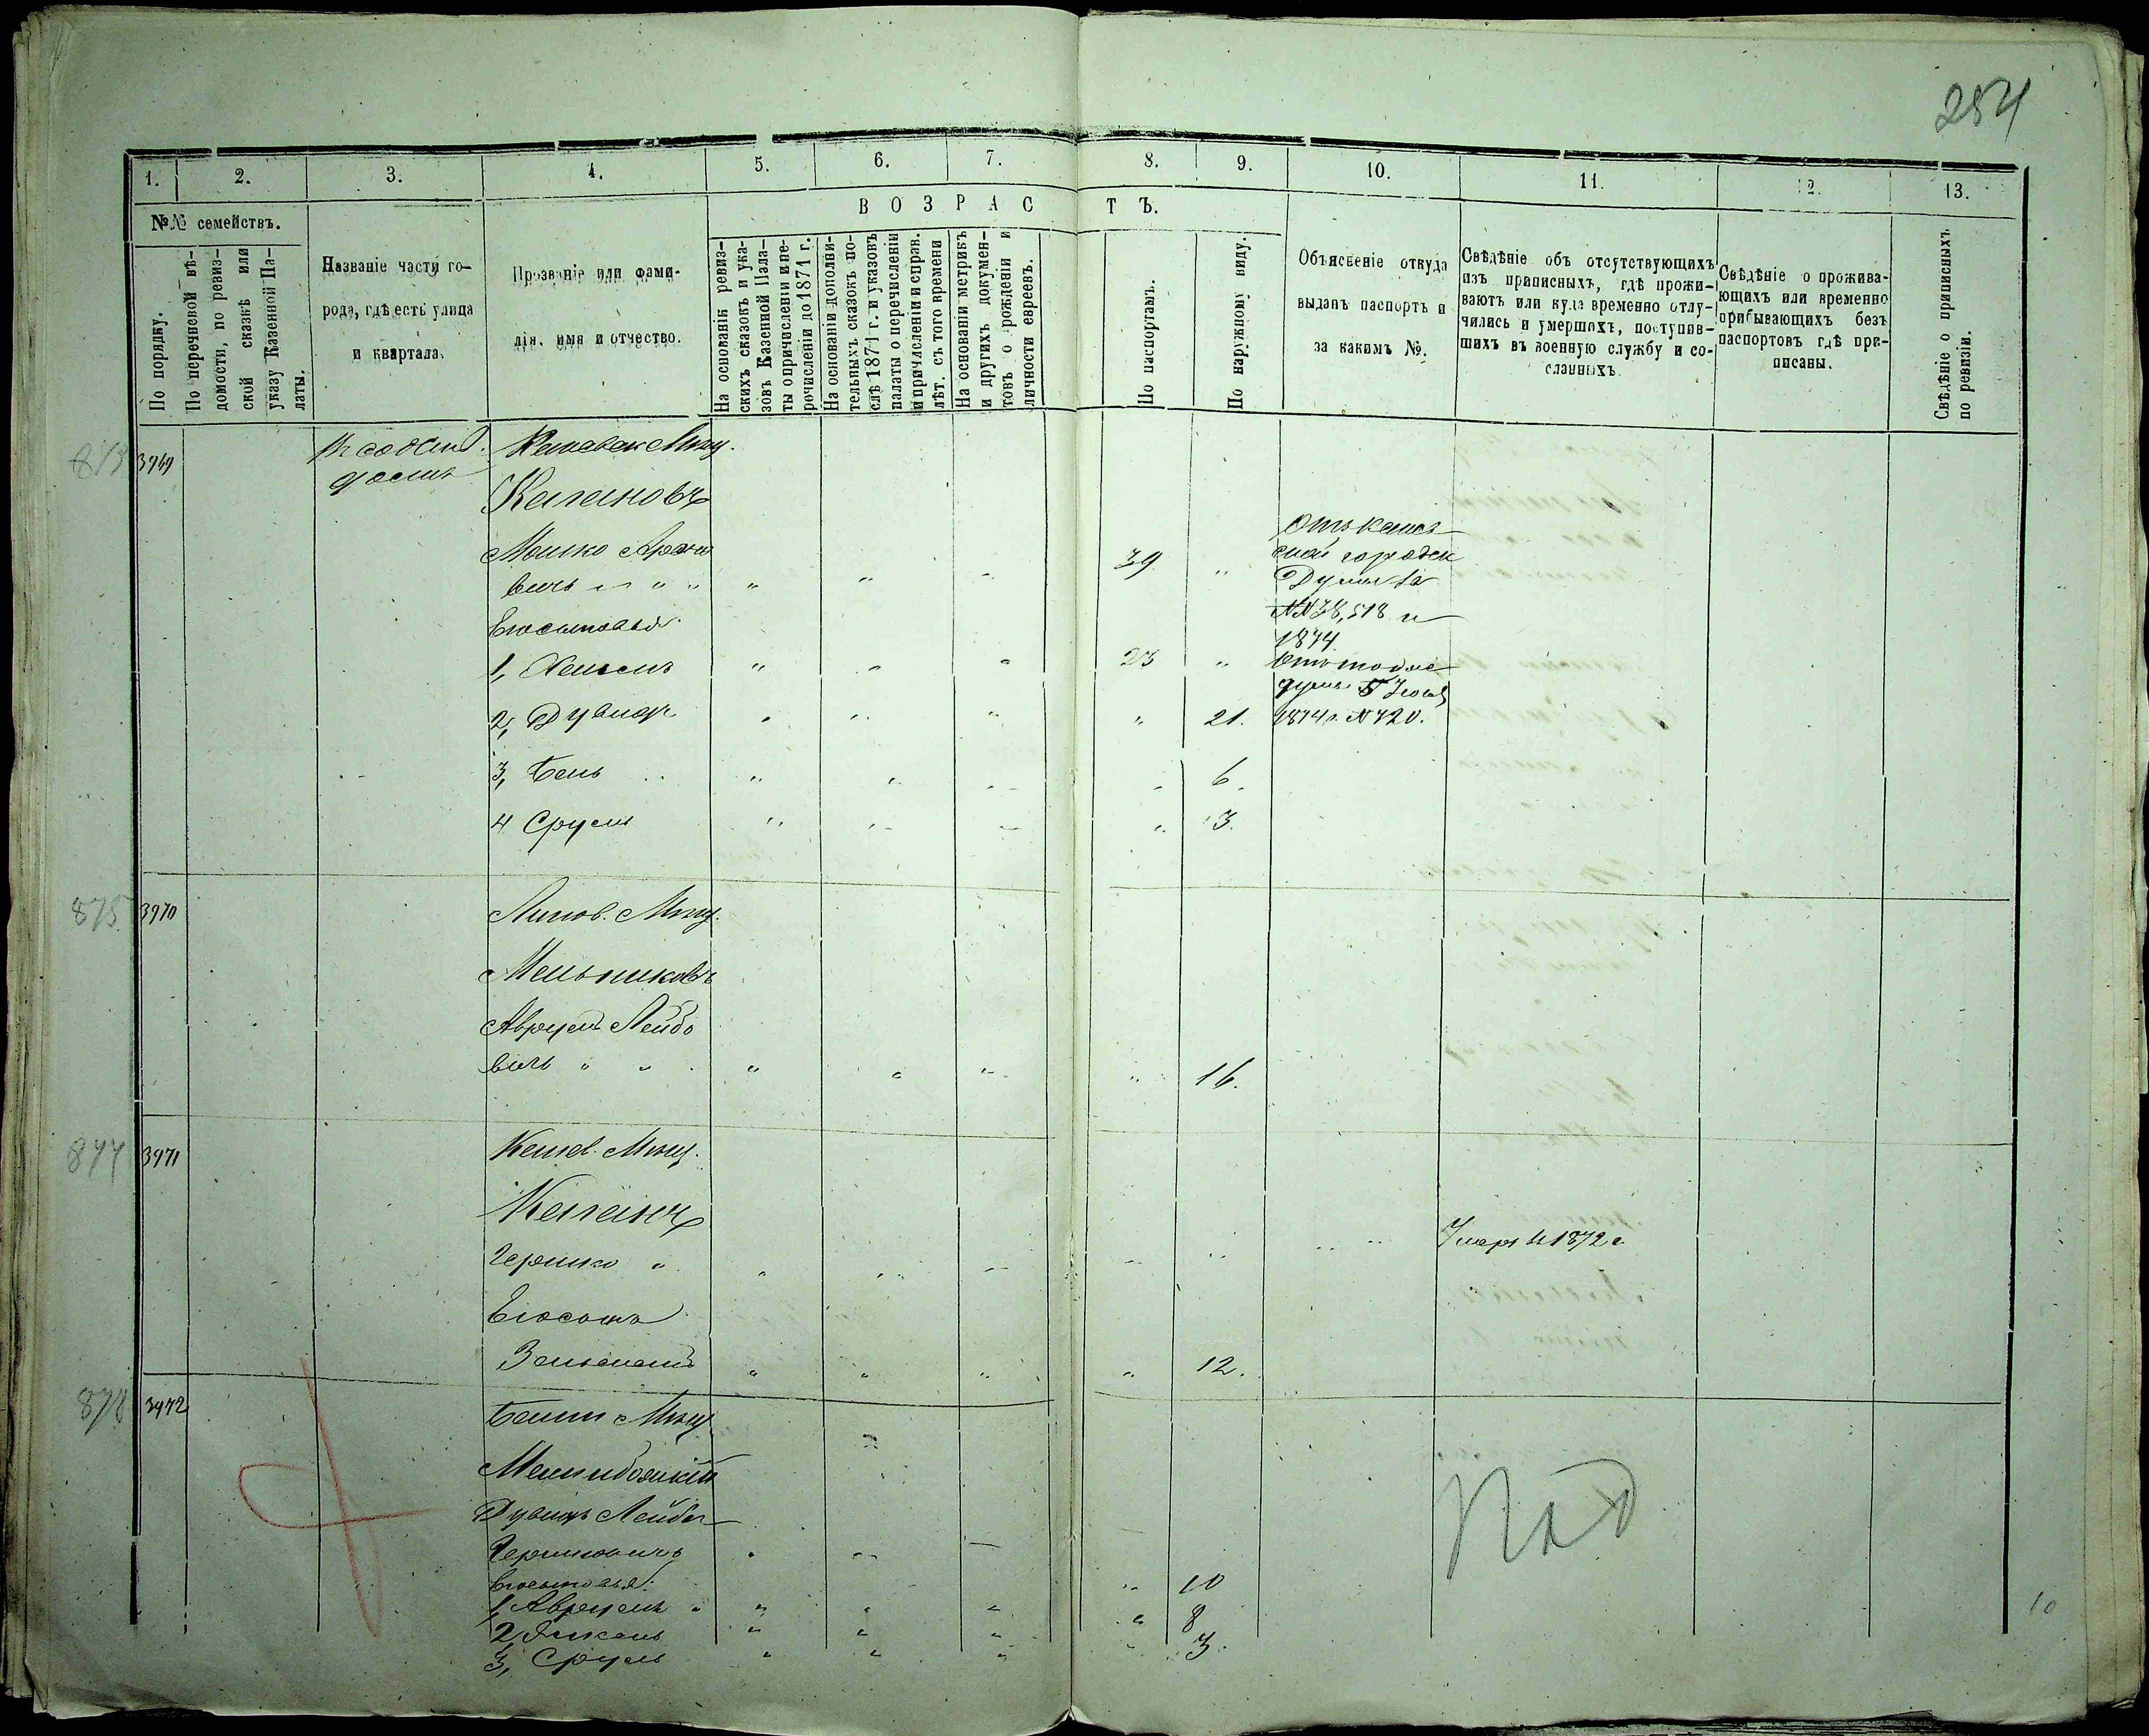 254
1.
2.
3.
4.
5.
6.
7.
8.
9.
10.
11.
12.
13.
№№ семействъ.
По порядку.
По перечневой вѣ-
домости, по ревиз-
ской сказкѣ или
указу Казенной Па-
латы.
Названіе части го-
рода, гдѣ есть улица
и квартала.
Прозваніе или фами-
лія, имя и отчество.
ВОЗРАСТЪ.
На основаніи ревиз-
скихъ сказокъ и ука-
зовъ Казенной Пала-
ты о причисленіи и пе-
речисленіи до 1871 г.
На основаніи дополни-
тельныхъ сказокъ по-
слѣ 1871 г. и указовъ
палаты о перечисленіи
и причисленіи и справ.
лѣт. съ того времени
На основаніи метрикъ
и другихъ докумен-
товъ о рожденіи и
личности евреевъ.
По паспортамъ.
По наружному виду.
Объясненіе откуда
выданъ паспортъ и
за какимъ №.
Свѣдѣніе объ отсутствующихъ
изъ приписныхъ, гдѣ прожи-
ваютъ или куда временно отлу-
чились и умершихъ, поступив-
шихъ въ военную службу и со-
сланныхъ
Свѣдѣніе о прожива-
ющихъ или временно
прибывающихъ безъ
паспортовъ гдѣ при-
писаны.
Свѣдѣніе о приписныхъ
по ревизіи.
3969
домѣ
Мѣщ.
Кагановъ
Мошко Арон
вичъ
39
городск
Думы за
№№ 38, 518 и
1874
Сыновья
1,
23
Отъ тойже
думы
2, Дувидъ
21.
1874 г. № 720.
3, Бень
6.
4 Сруль
3.
875
3970
Липов. Мѣщ.
Мельниковъ
Аврумъ Лейбо
вичъ
16.
877
3971
Мѣщ.
Каганъ
Гершко
Умеръ въ 1872 г.
Его сынъ
Зельманъ
12.
878
3972
Мѣщ
Меджибожскій
Дувидъ Лейба
Гершковичъ
Сыновья:
10
1, Аврумъ
8
2, Янкель
3.
3, Сруль
10